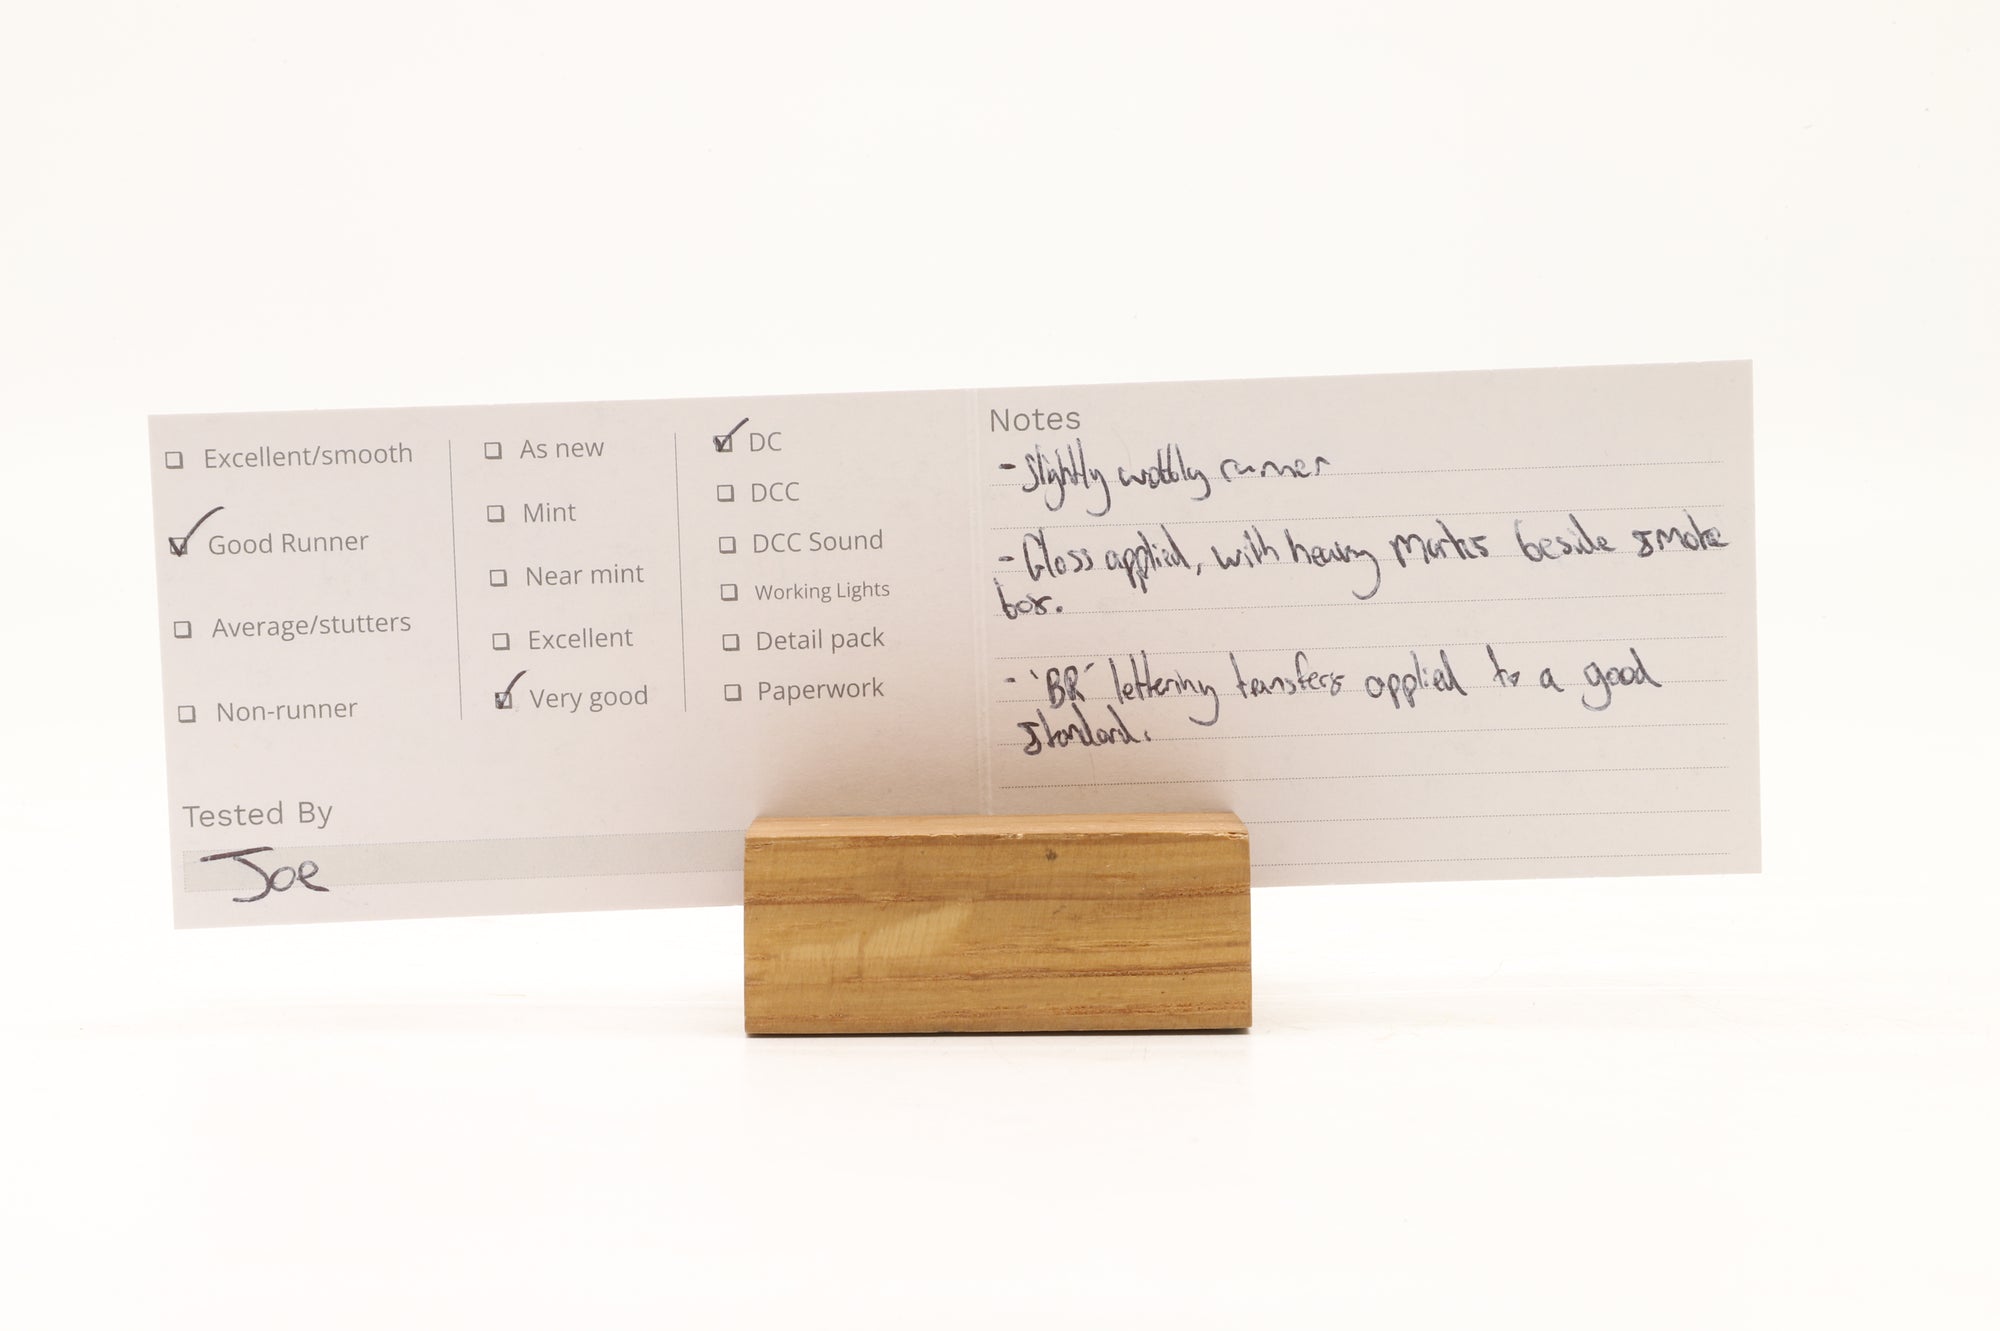 Excellent/smooth
Good Runner
Average/stutters
Non-runner
As new
Mint
Near mint
Excellent
Very good
DC
DCC
DCC Sound
Working Lights
Detail pack
Paperwork
Tested By
Joe
Notes
- Slightly wobbly runner
- Gloss applied, with heavy marks beside smoke
box.
- 'BR' lettering transfers applied to a good
standard.